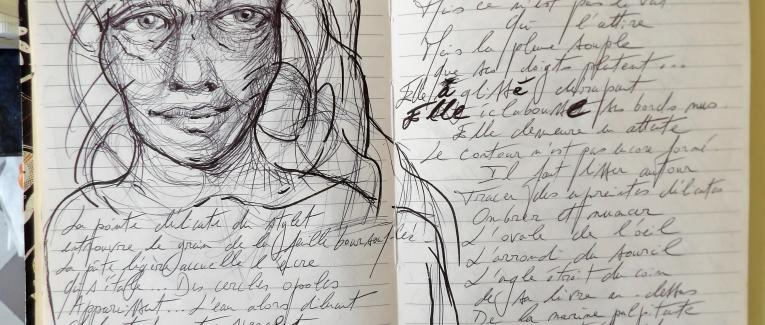 La pointe délicate du stylet
entrouvre le grain de la feuille boursouflée
La pâte légère accueille l'ocre
qui s'étale... Des cercles opales
Apparaissent... L'eau alors diluant
Mais ce n'est pas le
Qui l'attire
Mais la plume souple
Que ses doigts
Elle a glissé
Elle éclabousse ses bords nus.
Elle demeure en attente
Le contour n'est pas encore formé.
Il faut lisser autour
Tracer des empreintes délicates
Ombrer et nuancer
L'ovale de l'oeil
L'arrondi du sourcil
L'angle étroit du coin
de sa lèvre en-dessous
De la narine palpitante